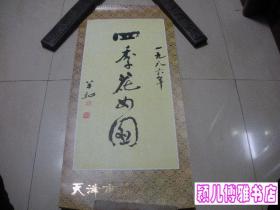 一九八六年
四季花鸟图
天津市
颖儿博雅书店